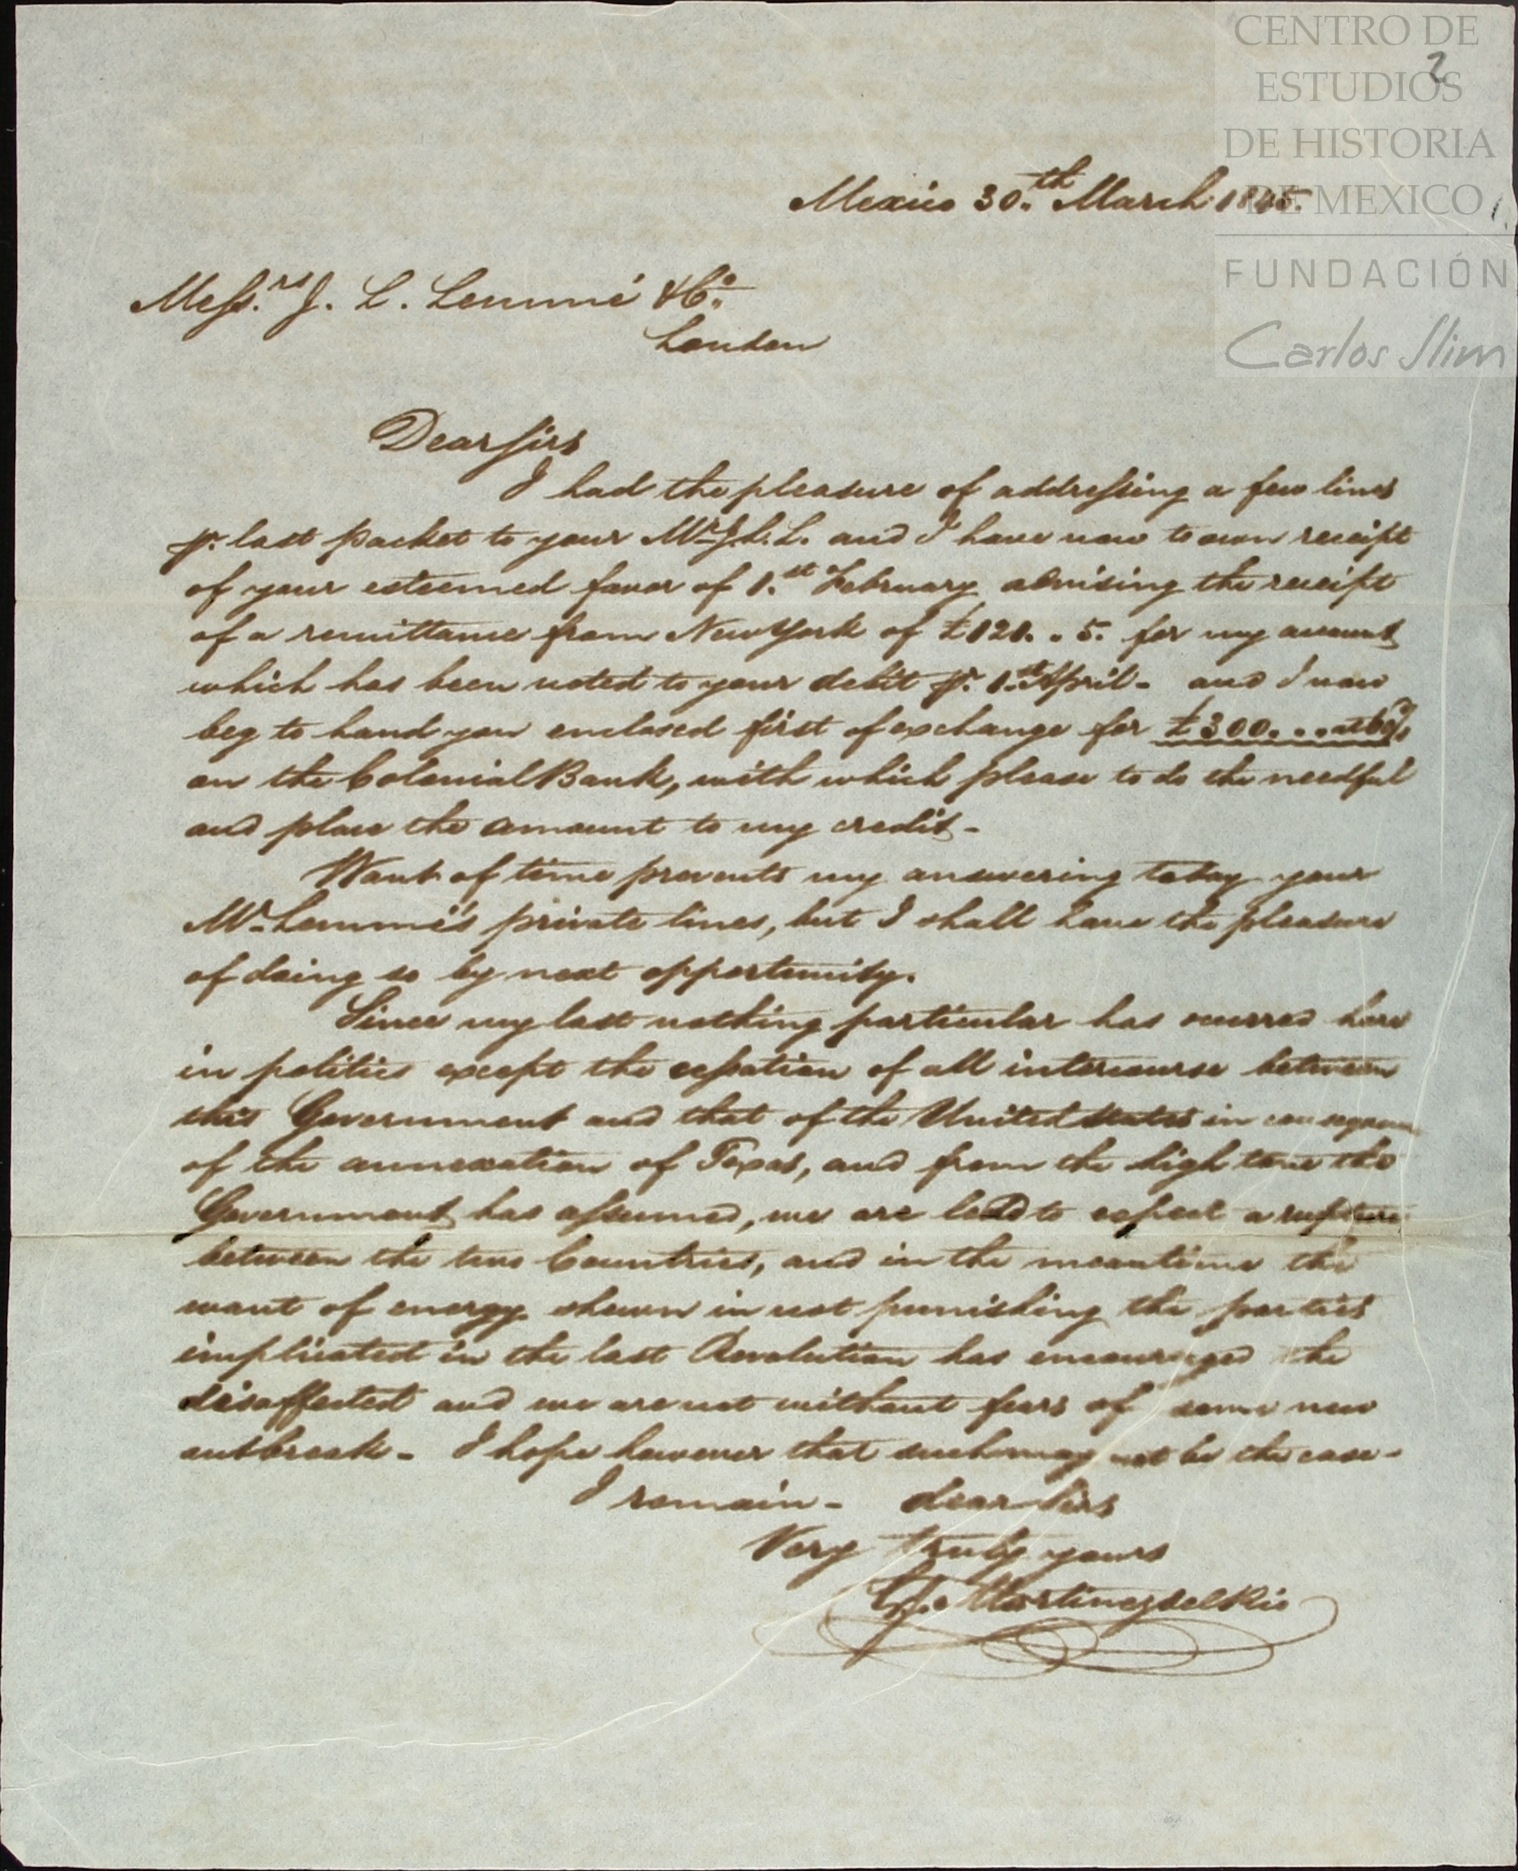 CENTRO DE
ESTUDIOS
DE HISTORIA
DE MEXICO
FUNDACIÓN
Carlos Slim
2
Mexico 30.th March 1845.
Messrs. J. L. Lemmé & Co.
London
Dear Sirs
I had the pleasure of addressing a few lines
pr. last packet to your Mr. J. L. L. and I have now to own receipt
of your esteemed favor of 1.st February advising the receipt
of a remittance from New York of £121. . 5. for my account
which has been noted to your debit pr. 1.st April - and I now
beg to hand you enclosed first of exchange for £300. . . at 60
on the Colonial Bank, with which please to do the needful
and place the amount to my credit -
Want of time prevents my answering today your
Mr. Lemmé's private lines, but I shall have the pleasure
of doing so by next opportunity.
Since my last nothing particular has ocurred here
in politics except the cessation of all intercourse between
this Government and that of the United States in consequence
of the annexation of Texas, and from the high tone the
Government has assumed, we are led to expect a rupture
between the two Countries, and in the meantime the
want of energy shewn in not punishing the parties
implicated in the last Revolution has encouraged the
disaffected and we are not without fears of some new
outbreak - I hope however that such may not be the case -
I remain - dear Sirs
Very truly yours
G. Martinez del Rio